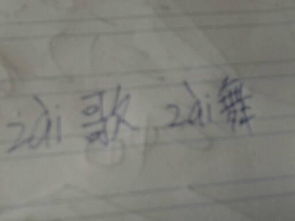 zài歌,zài舞